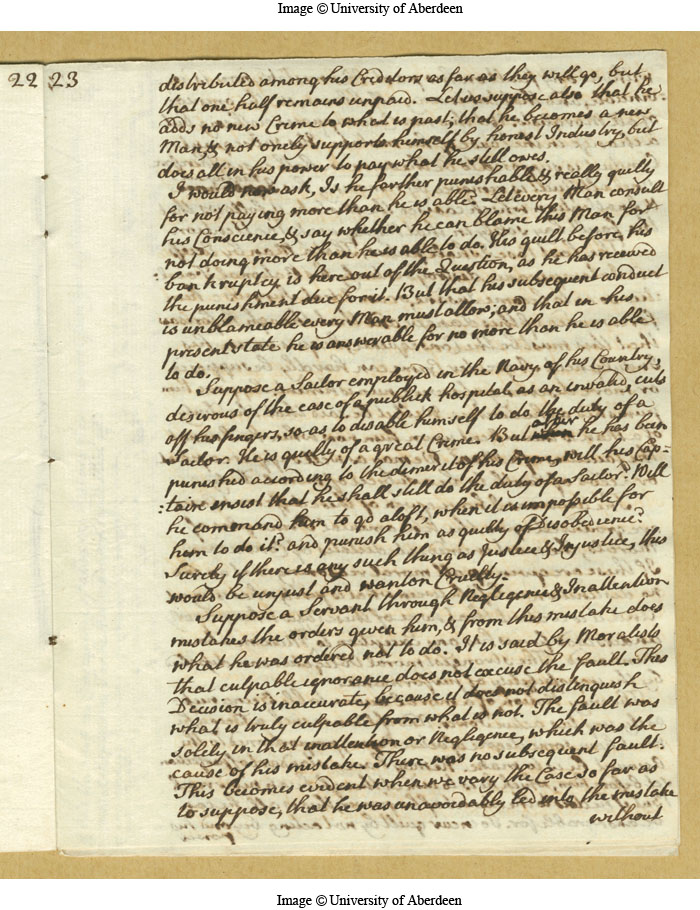 Image © University of Aberdeen
22 23
distributed among his Creditors as far as they will go, but
that one half remains unpaid. Let us suppose also that he
adds no new Crime to what is past; that he becomes a new
Man, & not onely supports himself by honest Industry, but
does all in his power to pay what he still owes.
I would now ask, Is he farther punishable & really guilty
for not paying more than he is able? Let every Man consult
his Conscience, & say whether he can blame this Man for
not doing more than he is able to do. His guilt before his
bankruptcy is here out of the Question, as he has received
the punishment due for it. But that his subsequent conduct
is unblameable every Man must allow; and that in his
present state he is answerable for no more than he is able
to do.
Suppose a Sailor employed in the Navy of his Country,
desirous of the ease of a publick hospital as an invalid, cuts
off his fingers, so as to disable himself to do the duty of a
Sailor. He is guilty of a great Crime. But after he has been
punished according to the demerit of his Crime, will his Cap=
:tain insist that he shall still do the duty of a Sailor? Will
he command him to go aloft, when it is impossible for
him to do it? and punish him as guilty of Disobedience?
Surely if there is any such thing as Justice & Injustice, this
would be unjust and wanton Cruelty.
Suppose a Servant through Negligence & Inattention
mistakes the orders given him, & from this mistake does
what he was ordered not to do. It is said by Moralists
that culpable ignorance does not excuse the fault. This
Decision is inaccurate, because it does not distinguish
what is truly culpable from what is not. The fault was
solely in that inattention or Negligence, which was the
cause of his mistake. There was no subsequent fault.
This becomes evident when we vary the Case so far as
to suppose, that he was unavoidably led into the mistake
without
Image © University of Aberdeen